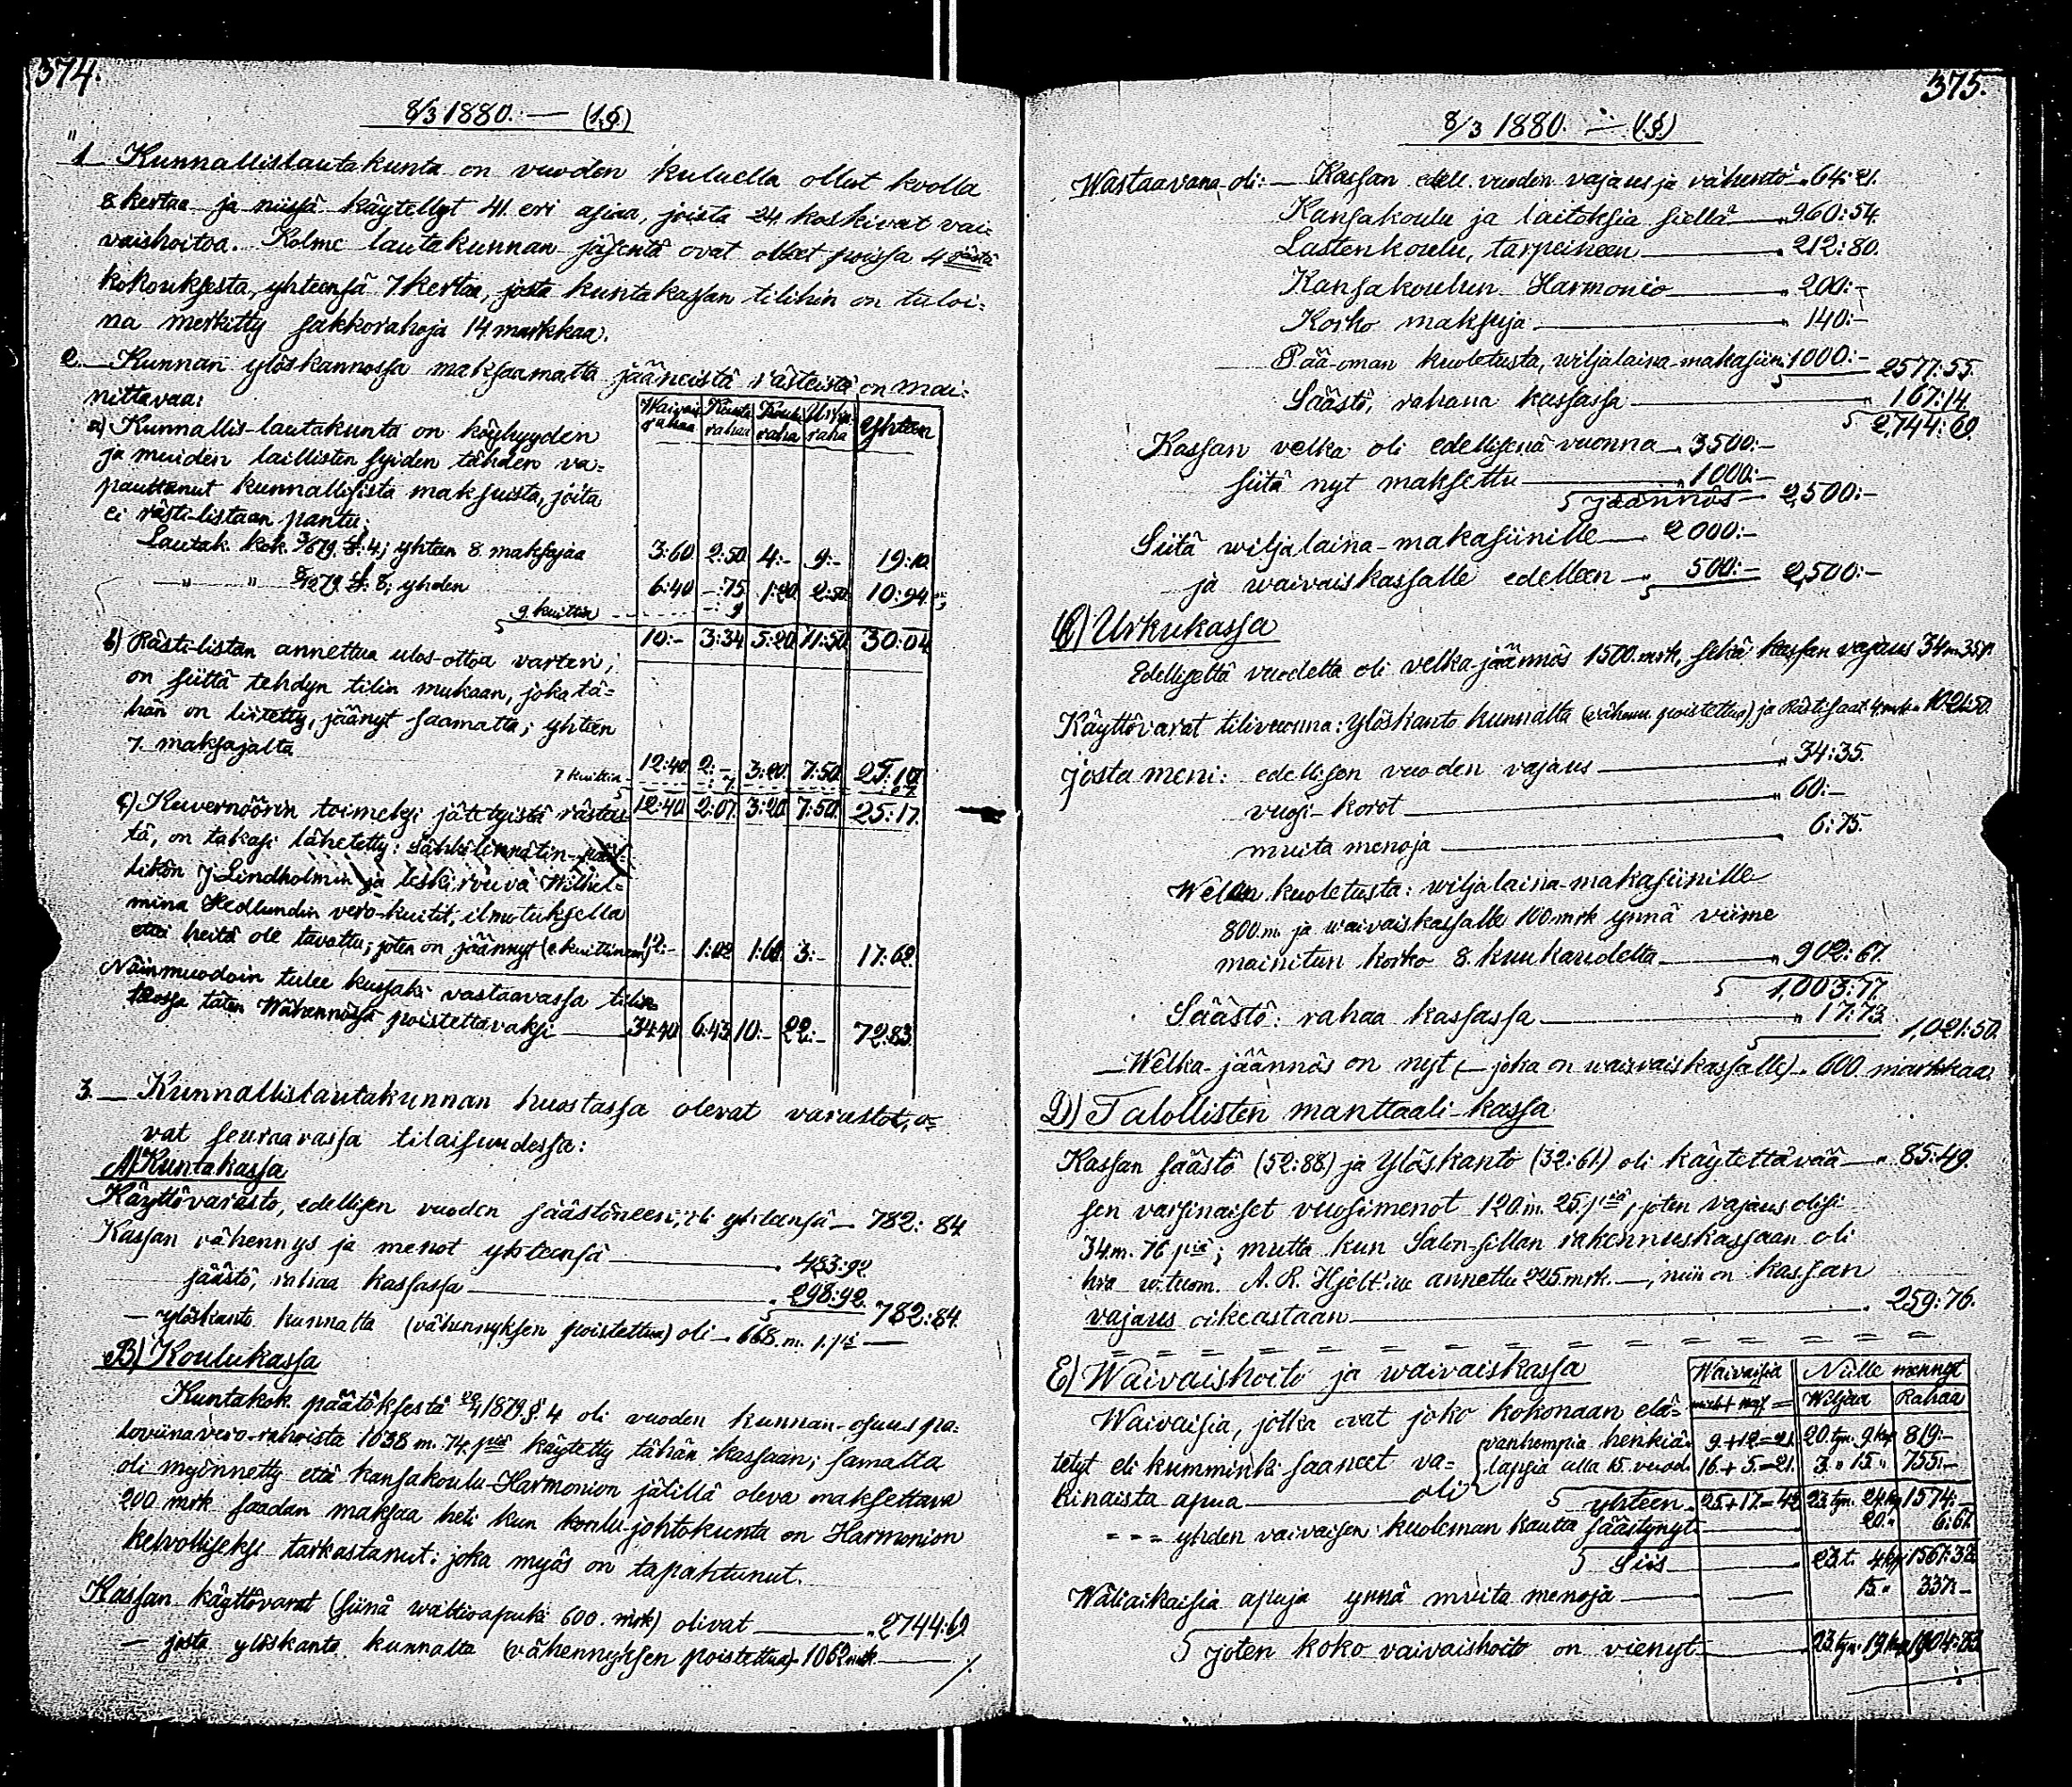 374.
8/3 1880. — (1.§.)
1 Kunnallislautakunta on vuoden kuluella ollut koolla
8 kertaa ja niissä käytellyt 41. eri asiaa, joista 24 koskivat vai-
vaishoitoa. Kolme lautakunnan jäsentä ovat olleet poissa 4
kokouksesta, yhteensä 7 kertaa, josta kuntakassan tilihin on tuloi-
na merkitty sakkorahoja 14 markkaa.
2. — Kunnan ylöskannossa maksamatta jääneistä rästeistä on mai-
nittavaa:
Waivais rahaa Kunta rahaa Koulu raha Urku raha Yhteen
a) Kunnallis-lautakunta on köyhyyden
ja muiden laillisten syiden tähden va-
pauttanut kunnallisista maksuista, joita
ei rästi-listaan pantu:
Lautak. kok. 3/6 79. §. 4; yhteen 8 maksajaa 3:60 2:50 4:- 9:- 19:10
—"— " 8/12 79. §. 8; yhden 6:40 -:75 1:20 2:50 10:94
9 kuittia -: 9
10:- 3:34 5:20 11:50 30:04
b) Rästi-listan annettua ulos-ottoa varten;
on siittä tehdyn tilin mukaan, joka tä-
hän on liitetty, jäänyt saamatta; yhteen
7. maksajalta 12:40 2:- 3:20 7:50 25:10
7 kuittia -: 7
12:40 2:07 3:20 7:50 25:17.
c) Kuvernöörin toimeksi jätetyistä rästeis-
tä, on takasi lähetetty: Sähkölennätin-
tikön J. Lindholmin ja leskirouva Wilhel-
mina Hedlundin vero-kuitit, ilmotuksella
ettei heitä ole tavattu; joten on jäännyt (2 kuittineen) 12:- 1:02 1:60 3:- 17:62.
Näinmuodoin tulee kussaki vastaavassa tilin
teossa täten Wähennöissä poistettavaksi — 34:40 6:43 10:- 22:- 72:83
3. — Kunnallislautakunnan huostassa olevat varustot, o-
vat seuraavassa tilaisuudessa:
A) Kuntakassa
Käyttövarasto, edellisen vuoden säästöneen, oli yhteensä — 782: 84
Kassan vähennys ja menot yhteensä — 483:92
säästö, rahaa kassassa — 298:92. 782:84.
— ylöskanto kunnalta (vähennyksen poistettua) oli — 668 m. 1 piä —
B) Koulukassa
Kuntakok. päätöksestä 1879 §. 4 oli vuoden kunnan-osuus pa-
loviinavero-rahoista 1038 m. 74 piä käytetty tähän kassaan; samalla
oli myönnetty että kansakoulu-Harmonion jätillä oleva maksettava
200 mrk. saadan maksaa heti kun koulu-johtokunta on Harmonion
kelvolliseksi tarkastanut; joka myös on tapahtunut.
Kassan käyttövarat (siinä waltioapuki 600. mrk) olivat — 2744:69
— josta ylöskanto kunnalta (vähennyksen poistettua) 1062 mrk. — /.
375.
8/3 1880. — (1.§.)
Wastaavana oli: — Kassan edell. vuoden vajaus ja vähentö „ 64: 21.
Kansakoulu ja laitoksia siellä — „ 960:54.
Lastenkoulu, tarpeineen — „ 212:80.
Kansakoulun Harmonio — „ 200:-
Korko maksuja — „ 140:-
Pää-oman kuoletusta, wiljalaina-makasiini 1000:- 2577:55.
Säästö, rahana kassassa — „ 167:14
2,744: 69.
Kassan velka oli edellisenä vuonna — 3500:-
siitä nyt maksettu — „ 1000:-
jäännös — 2,500:-
Siitä wiljalaina-makasiinille — 2000:-
ja waivaiskassalle edelleen — „ 500:- 2,500:-
C) Urkukassa
Edelliseltä vuodelta oli velka-jäännös 1500 mrk, sekä kassan vajaus 34 m 35 p.
Käyttövarat tilivuonna: ylöskanto kunnalta (vähenn. poistettua) ja Rästi-saat. 4 mrk. 1021:50.
josta meni: edellisen vuoden vajaus — „ 34:35.
vuosi-korot — „ 60:-
muita menoja — „ 6:75.
Welan kuoletusta: wiljalaina-makasiinille
800 m. ja waivaiskassalle 100 mrk ynnä viime
mainitun korko 8. kuukaudelta — „ 902:67.
1,003:77.
Säästö: rahaa kassassa — „ 17:73 1,021:50.
— Welka-jäännös on nyt (— joka on waivaiskassalle) — 600 markkaa.
D) Talollisten manttaali-kassa
Kassan säästö (52:88) ja Ylöskanto (32:61) oli käytettävää — „ 85:49.
sen varsinaiset vuosimenot 120 m. 25 piä, joten vajaus olisi
34 m. 76 piä; mutta kun Salon-sillan rakennuskassaan oli
hra A. R. Hjelt'ille annettu 225 mrk. —, niin on kassan
vajaus oikeastaan — 259:76.
E) Waivaishoito ja waivaiskassa
Waivaisia Niille mennyt
Wiljaa Rahaa
Waivaisia, jotka ovat joko kokonaan elä-
tetyt eli kumminki saaneet va-
kinaista apua — oli
vanhempia henkiä 9+12=21. 20 tyn. 9 kp 819:-
lapsia alla 15 vuod. 16+5=21. 3 „ 15 „ 755:-
yhteen 25+17=42 23 tyn. 24 kp 1574:-
= = = yhden vaivaisen kuoleman kautta säästynyt — 20 „ 6:67.
Siis — 23 t. 4 kp 1567:33
Wäliaikaisia apuja ynnä muita menoja — 15 „ 337:-
joten koko vaivaishoito on vienyt — 23 tyn. 19 kp 1904:33